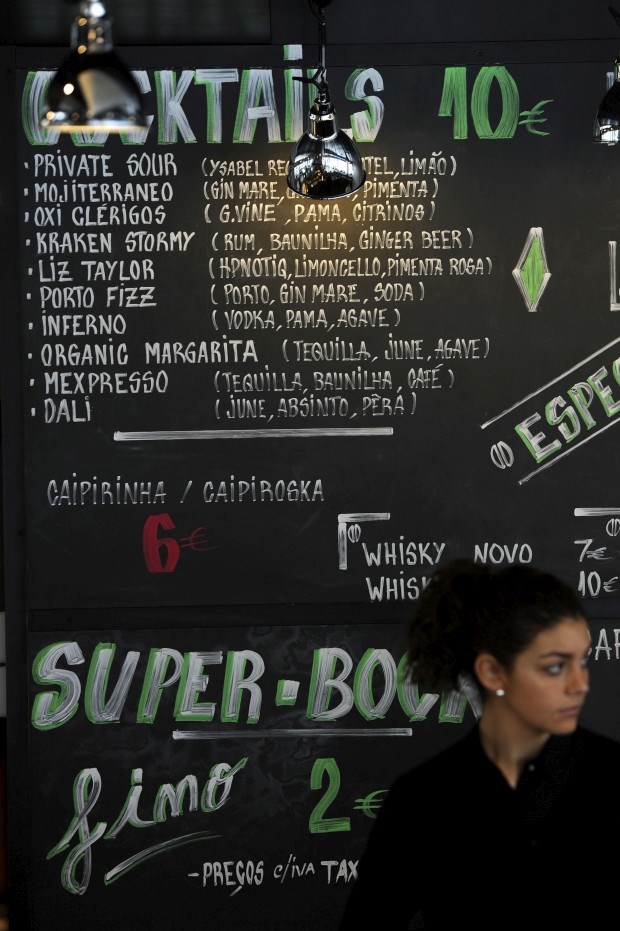 COCKTAILS 10€
· PRIVATE SOUR (YSABEL LIMÃO)
· MOJITERRANEO (GIN MARE, PIMENTA)
· OXI CLÉRIGOS (G.VINE, PAMA, CITRINOS)
· KRAKEN STORMY (RUM, BAUNILHA, GINGER BEER)
· LIZ TAYLOR (HPNÓTIQ, LIMONCELLO, PIMENTA ROSA)
· PORTO FIZZ (PORTO, GIN MARE, SODA)
· INFERNO (VODKA, PAMA, AGAVE)
· ORGANIC MARGARITA (TEQUILLA, JUNE, AGAVE)
· MEXPRESSO (TEQUILLA, BAUNILHA, CAFÉ)
· DALI (JUNE, ABSINTO, PÊRA)
CAIPIRINHA / CAIPIROSKA
6€
WHISKY NOVO 7€
10€
SUPER·BOCK
fino 2€
-PREÇOS c/IVA